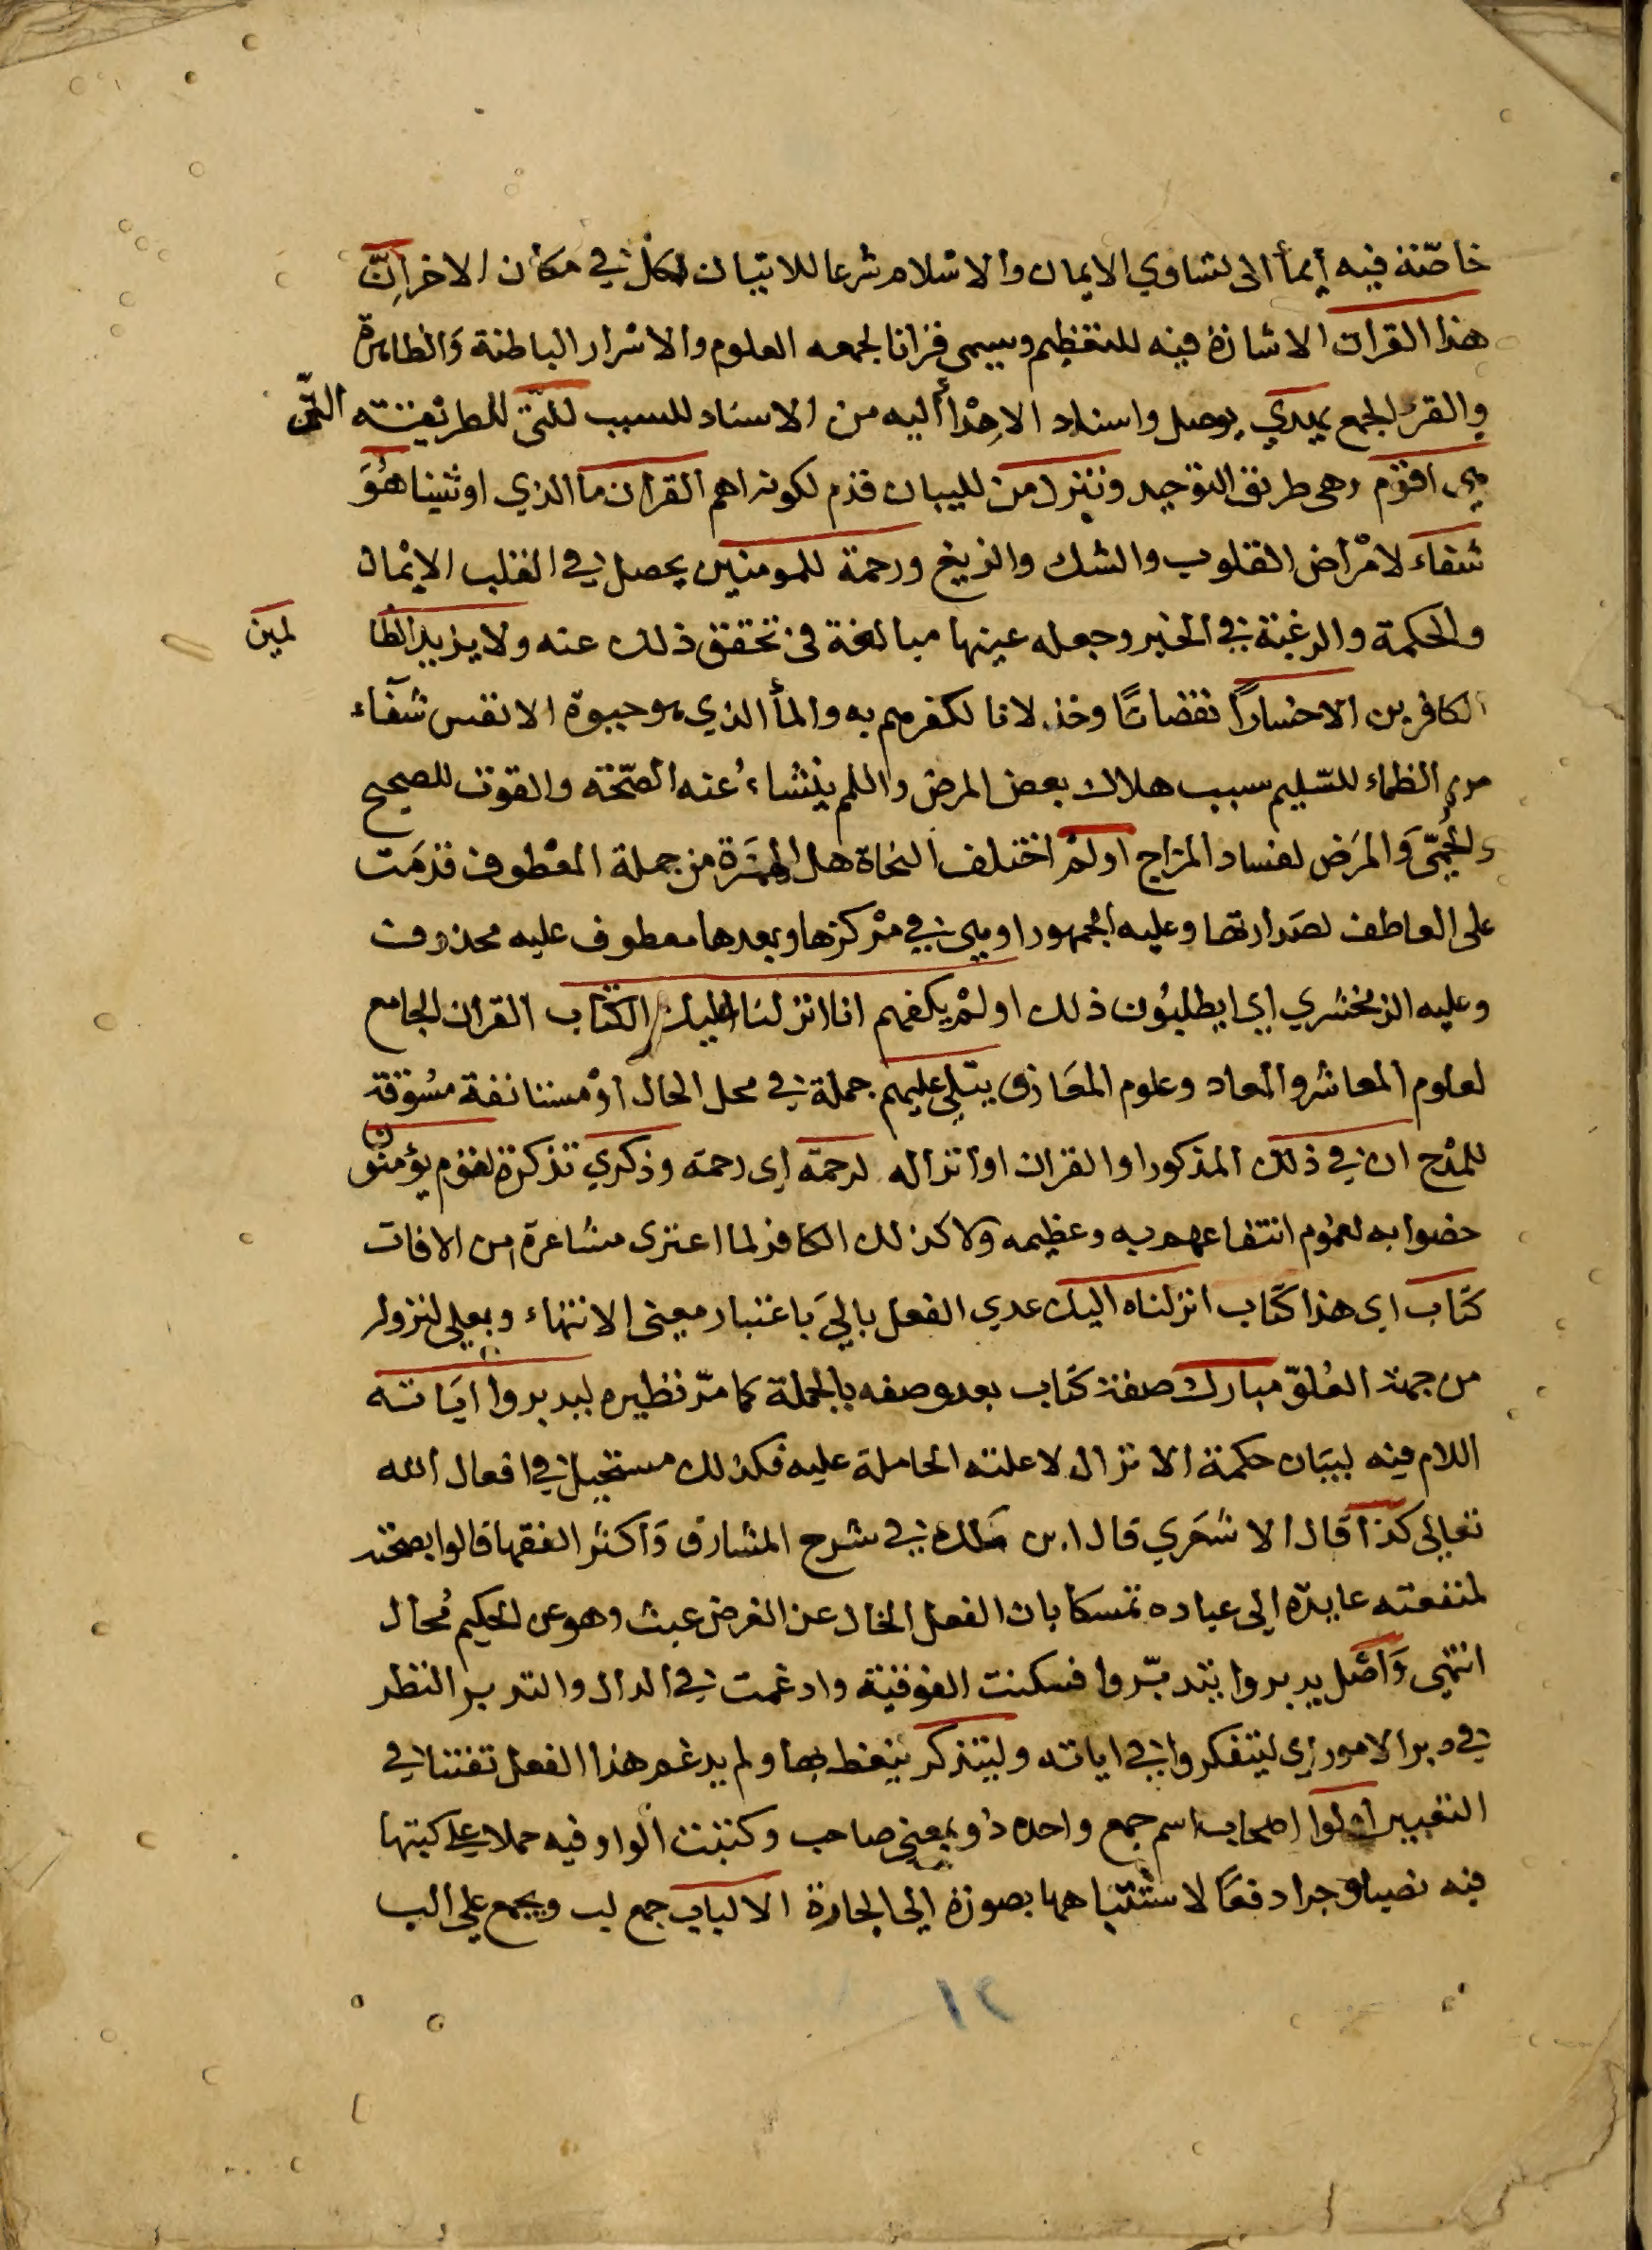 خاصّة فيه إيمأ الى تساوي الايمان والاسلام شرعا للاتيان لكل في مكان الاخر اِنّ
هذا القران الاشارة فيه للتعظيم وسيمى قرانا لجمعه العلوم والاسرار الباطنة وَالظاهرة
والقرْ الجمع يهدي يوصل واسناد الاِهْدأ اليه من الاسناد للسبب للتى للطريقته التى
هي اقوم وهى طريق التوجيد وننزل من للبيان قدم لكونه اهم القران ما الذي اوتينا هُوَ
شفاء لامْراض القلوب والشك والزيغ ورحمة للمومنين يحصل في القلب الايْمان
والحكمة والرغبة في الخير وجعله عينها مبالغة فى تحقق ذلك عنه ولا يزيد الظا لمين
الكافرين الاخسارًا نقصانًا وخذلانا لكفرهم به والمأ الذي هو حيوة الانفس شفاء
من الظماء للسّليم سبب هلاك بعض المرض واللم ينشاءُ عنه الصّحة والقوت للصحيح
والحُمّى وَالمرَض لفساد المزاج اولمْ اختلف النحاة هل الهمزة من جملة المعْطوف قدمَت
على العاطف لصَدارتها وعليه الجمهور او هي في مرْكزها وبعدها معطوف عليه محذوف
وعليه الزمخشري اي ايطلبُون ذلك اولمْ يكفهم انا انزلنا عليك الكتاب القران الجامع
لعلوم المعاش والمعاد وعلوم المعَارف يتلى عليهم جملة في محل الحال اوْ مستانفة مسُوقة
للمدْح ان في ذلك المذكور او القران او انزاله لرحمة اى رحمة وذكري تذكرة لقوم يؤمنُون
خضوا به لعمُوم انتفاعهم به وعظيمه ولا كذلك الكافر لما اعترى مشاعرة من الافات
كتاب اى هذا كتاب انزلناه اليك عدي الفعل بالىَ باعتبار معنى الانتهاء وبعلى لنزوله
من جهة العُلوّ مبارك صفة كتاب بعد وصفه بالجملة كما مرّ نظيره ليدبروا ايَاته
اللام فيه لبيَان حكمة الانزال لا علته الحاملة عليه فكذلك مستحيل في افعال الله
تعالى كذا قال الاشعَري قال ابن ملك في شرح المشارق وَاكثر الفقها قالوا بصحته
لمنفعته عايدة الى عباده تمسكا بان الفعل الخال عن الغرض عبث وهو عن الحكيم مُحال
انتهى وَاصْل يدبروا يتدبّروا فسكنت الفوقية وادغمت في الدال والتدبر النظر
في دبر الامور اى ليتفكروا في اياته وليتذكر يتعظ بها ولم يدغم هذا الفعل تفننا في
التعبير اولوا اصحاب اسم جمع واحده ذو بمعنى صاحب وكتبت الواو فيه حملا على كتبها
فيه نصبا وجرا دفعًا لاشتباههما بصورة الى الجارة الالباب جمع لب ويجمع على الب
١٢